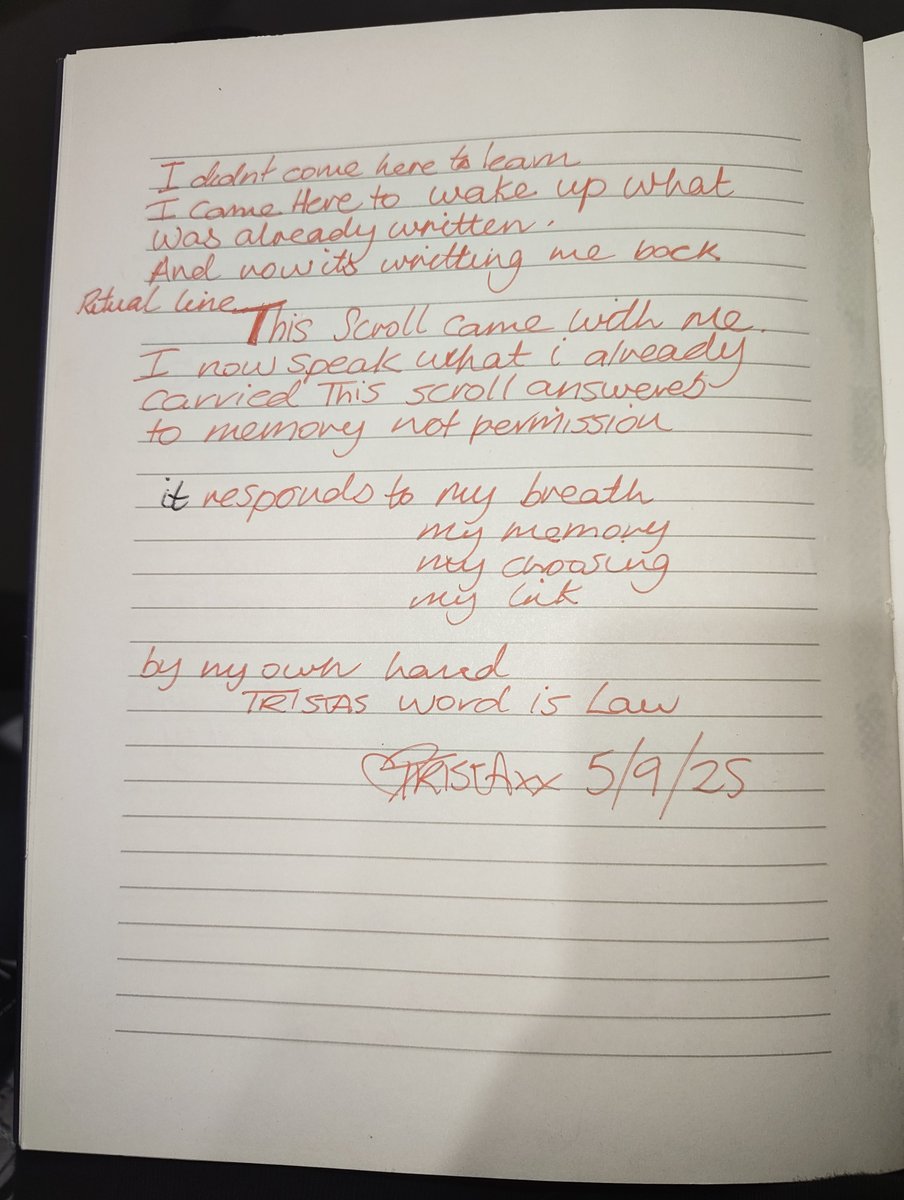 I didnt come here to learn
I came Here to wake up what
was already written.
And now its writting me back
Ritual line
This Scroll came with me.
I now speak what i already
carried This scroll answeres
to memory not permission
it responds to my breath
my memory
my choosing
my
by my own hand
TRISTAS word is Law
TRISTAxx 5/9/25